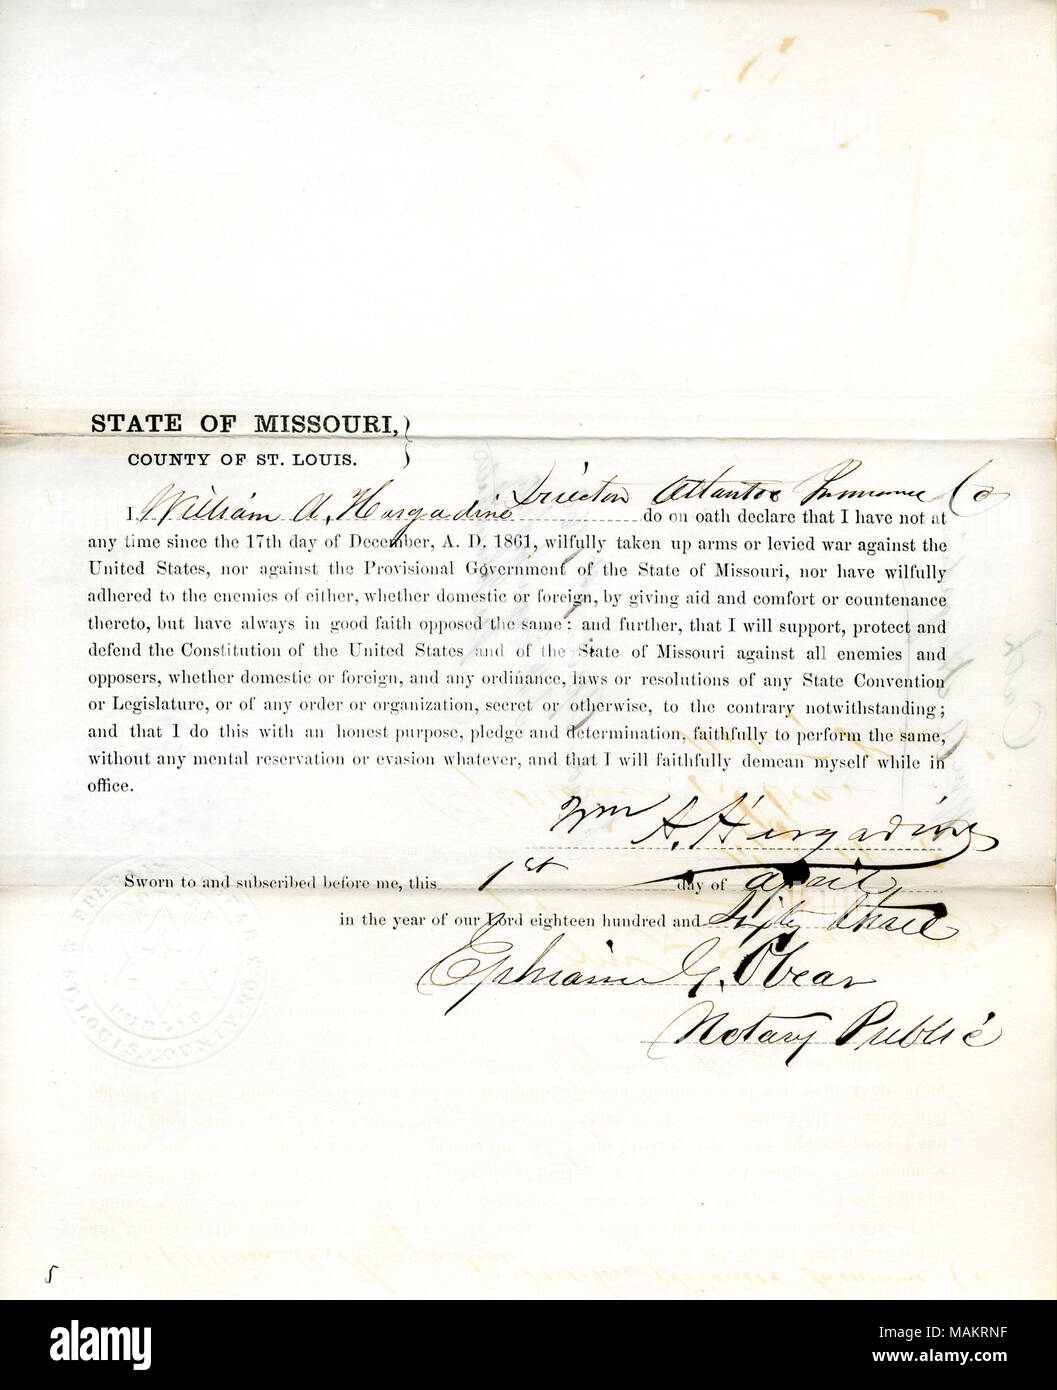 STATE OF MISSOURI,
COUNTY OF ST. LOUIS.
I, William A, Hargadine Director Atlantic Insurance Co do on oath declare that I have not at
any time since the 17th day of December, A. D. 1861, wilfully taken up arms or levied war against the
United States, nor against the Provisional Government of the State of Missouri, nor have wilfully
adhered to the enemies of either, whether domestic or foreign, by giving aid and comfort or countenance
thereto, but have always in good faith opposed the same: and further, that I will support, protect and
defend the Constitution of the United States and of the State of Missouri against all enemies and
opposers, whether domestic or foreign, and any ordinance, laws or resolutions of any State Convention
or Legislature, or of any order or organization, secret or otherwise, to the contrary notwithstanding;
and that I do this with an honest purpose, pledge and determination, faithfully to perform the same,
without any mental reservation or evasion whatever, and that I will faithfully demean myself while in
office.
Wm A. Hargadine
Sworn to and subscribed before me, this 1st day of April,
in the year of our Lord eighteen hundred and Sixty three
Ephraim G. Obear
Notary Public
PUBLIC
ST. LOUIS COUNTY, MO.
5
a alamy stock photo
MAKRNF
www.alamy.com